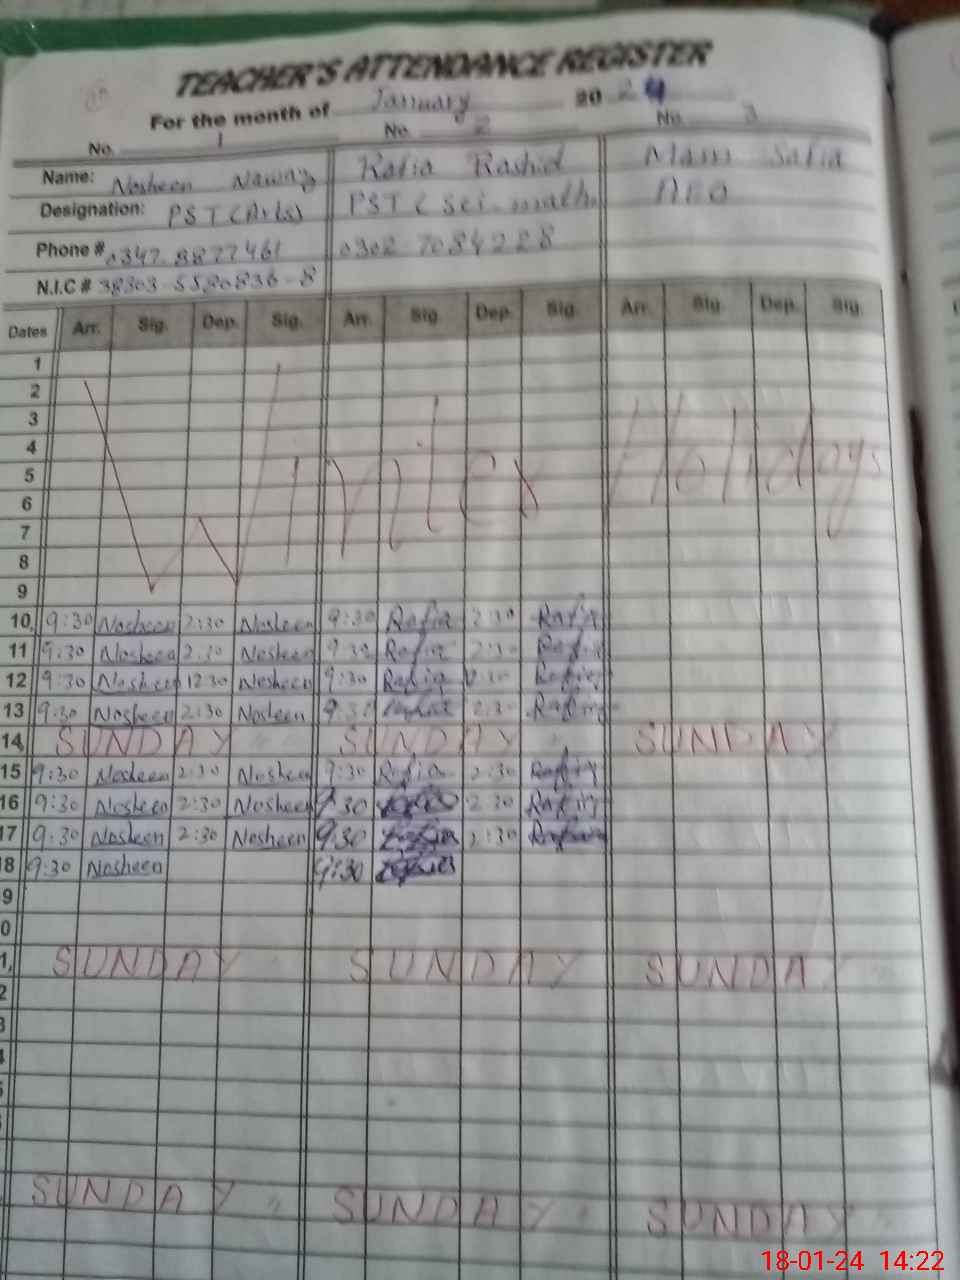 TEACHER'S ATTENDANCE REGISTER
For the month of January 20 24
No. 1 No. 2 No. 3
Name: Nosheen Nawaz Rafia Rashid Mam Safia
Designation: PST (Arts) PST ( Sci-math AEO
Phone # 0347 8877461 0302 7084228
N.I.C # 38303-5580836-8
Dates Arr. Sig. Dep. Sig. Arr. Sig. Dep. Sig. Arr. Sig. Dep. Sig.
1
2
3
4
5
6
7
8
9
Winter Holidays
10 9:30 Nosheen 2:30 Nosheen 9:30 Rafia 2:30 Rafia
11 9:30 Nosheen 2:30 Nosheen 9:30 Rafia 2:30 Rafia
12 9:30 Nosheen 12:30 Nosheen 9:30 Rafia 12:30 Rafia
13 9:30 Nosheen 2:30 Nosheen 9:30 2:30 Rafia
14 SUNDAY SUNDAY SUNDAY
15 9:30 Nosheen 2:30 Nosheen 9:30 Rafia 2:30 Rafia
16 9:30 Nosheen 2:30 Nosheen 9:30 2:30 Rafia
17 9:30 Nosheen 2:30 Nosheen 9:30 Rafia 2:30 Rafia
18 9:30 Nosheen 9:30
9
0
1 SUNDAY SUNDAY SUNDA
2
3
4
SUNDAY SUNDAY SUNDAY
18-01-24 14:22